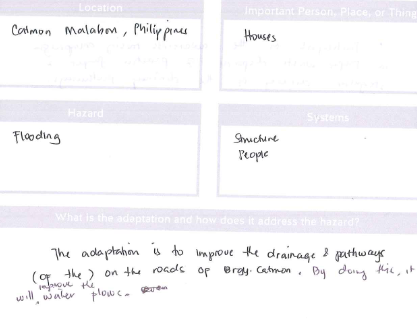 Location
Important Person, Place, or Thing
Catmon Malabon, Philippines
Houses
Hazard
Systems
Flooding
Structure
People
What is the adaptation and how does it address the hazard?
The adaptation is to improve the drainage & pathways
(of the) on the roads of Brgy. Catmon. By doing this, it
improve the
will, water flows.